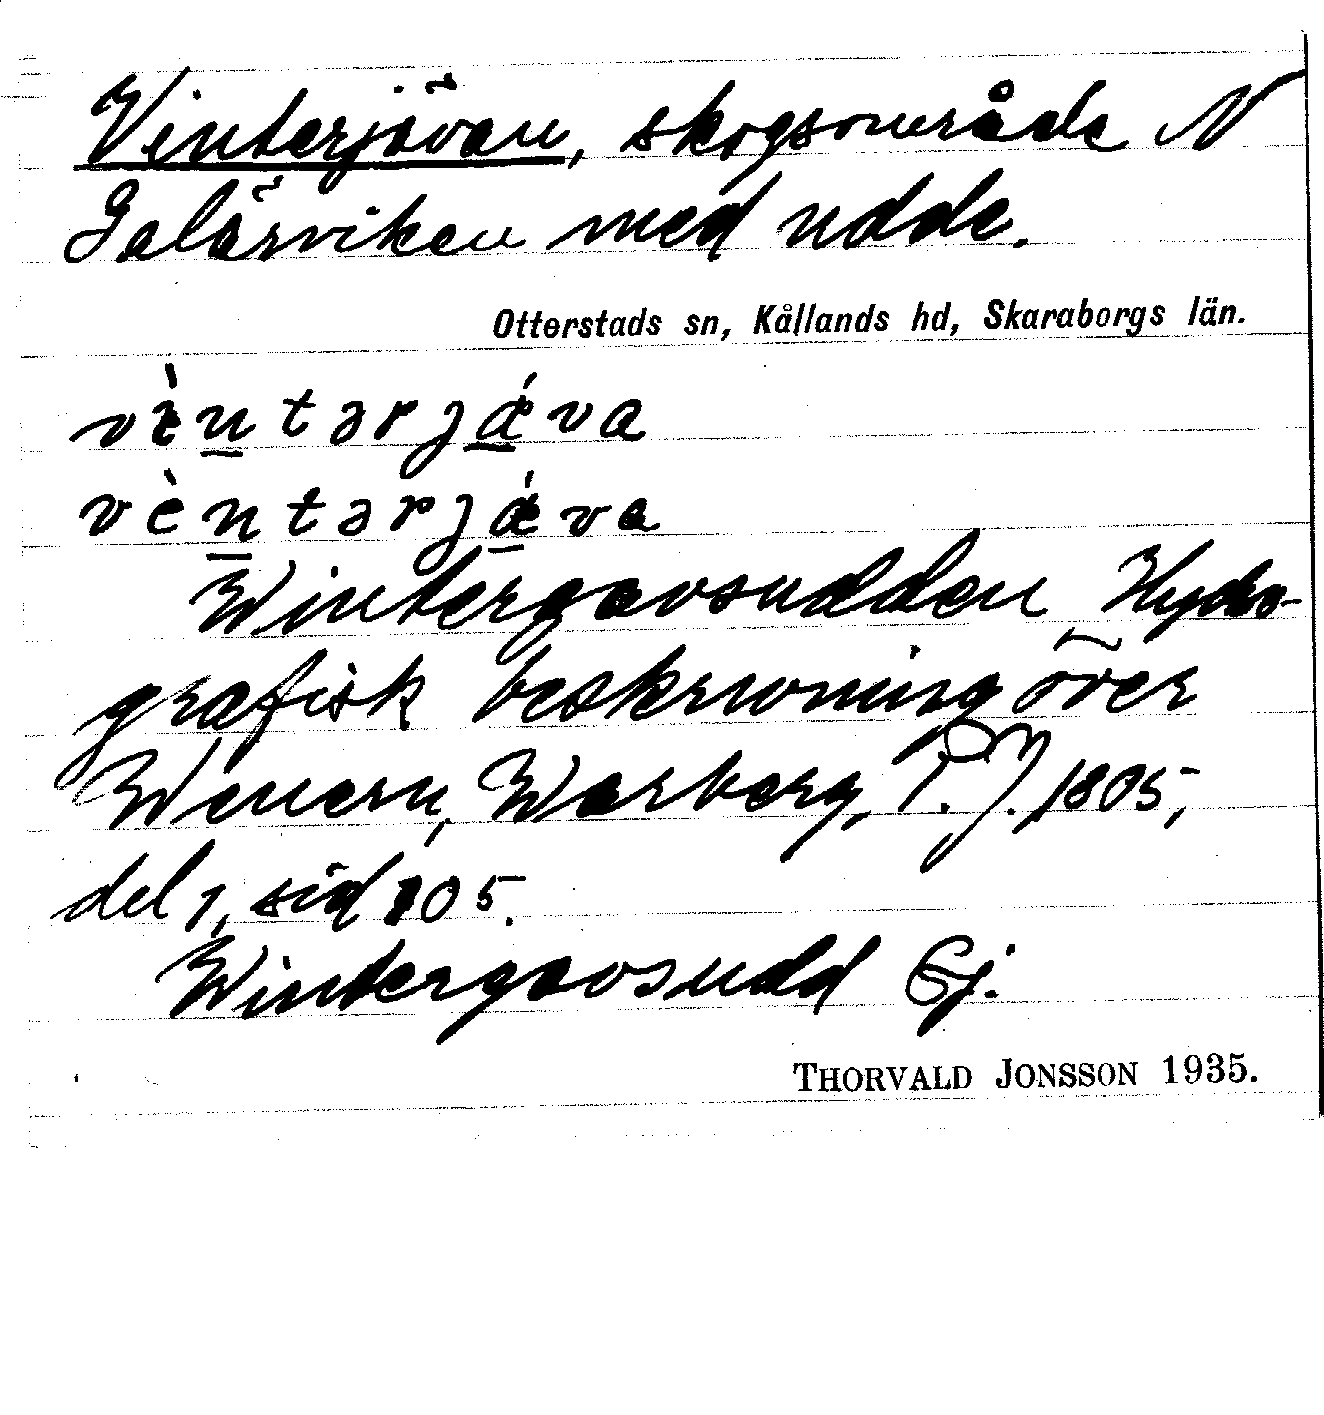 Vinterjävan, skogsområde N
Galärviken med udde.
Otterstads sn, Kållands hd, Skaraborgs län.
vèntərjǽva
vèntərjǽva
Wintergavsudden Hydro-
grafisk beskrivning över
Wenern, Warberg, P. J. 1805,
del 1, sid 105.
Wintergavsudd Gj.
THORVALD JONSSON 1935.